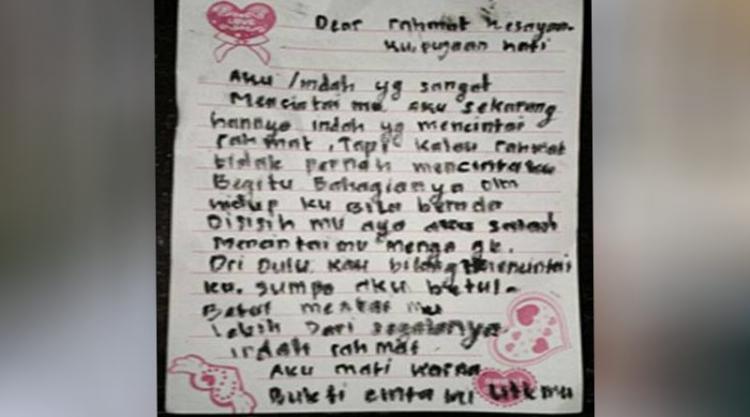 Dear rahmat kesayan-
ku, pujaan hati
Aku indah yg sangat
Mencintai mu aku sekarang
hannya indah yg mencintai
rahmat, Tapi kalau rahmat
tidak pernah mencintaku
Begitu Bahagianya dlm
hidup ku Bila berada
Disisih mu aya aku salah
Mencintaimu
Dri Dulu kau bilang mencintai
ku. sumpa aku betul-
Betul mu
lebih Dari segalanya
indah rahmat
Aku mati karna
Bukti cinta ku utk mu